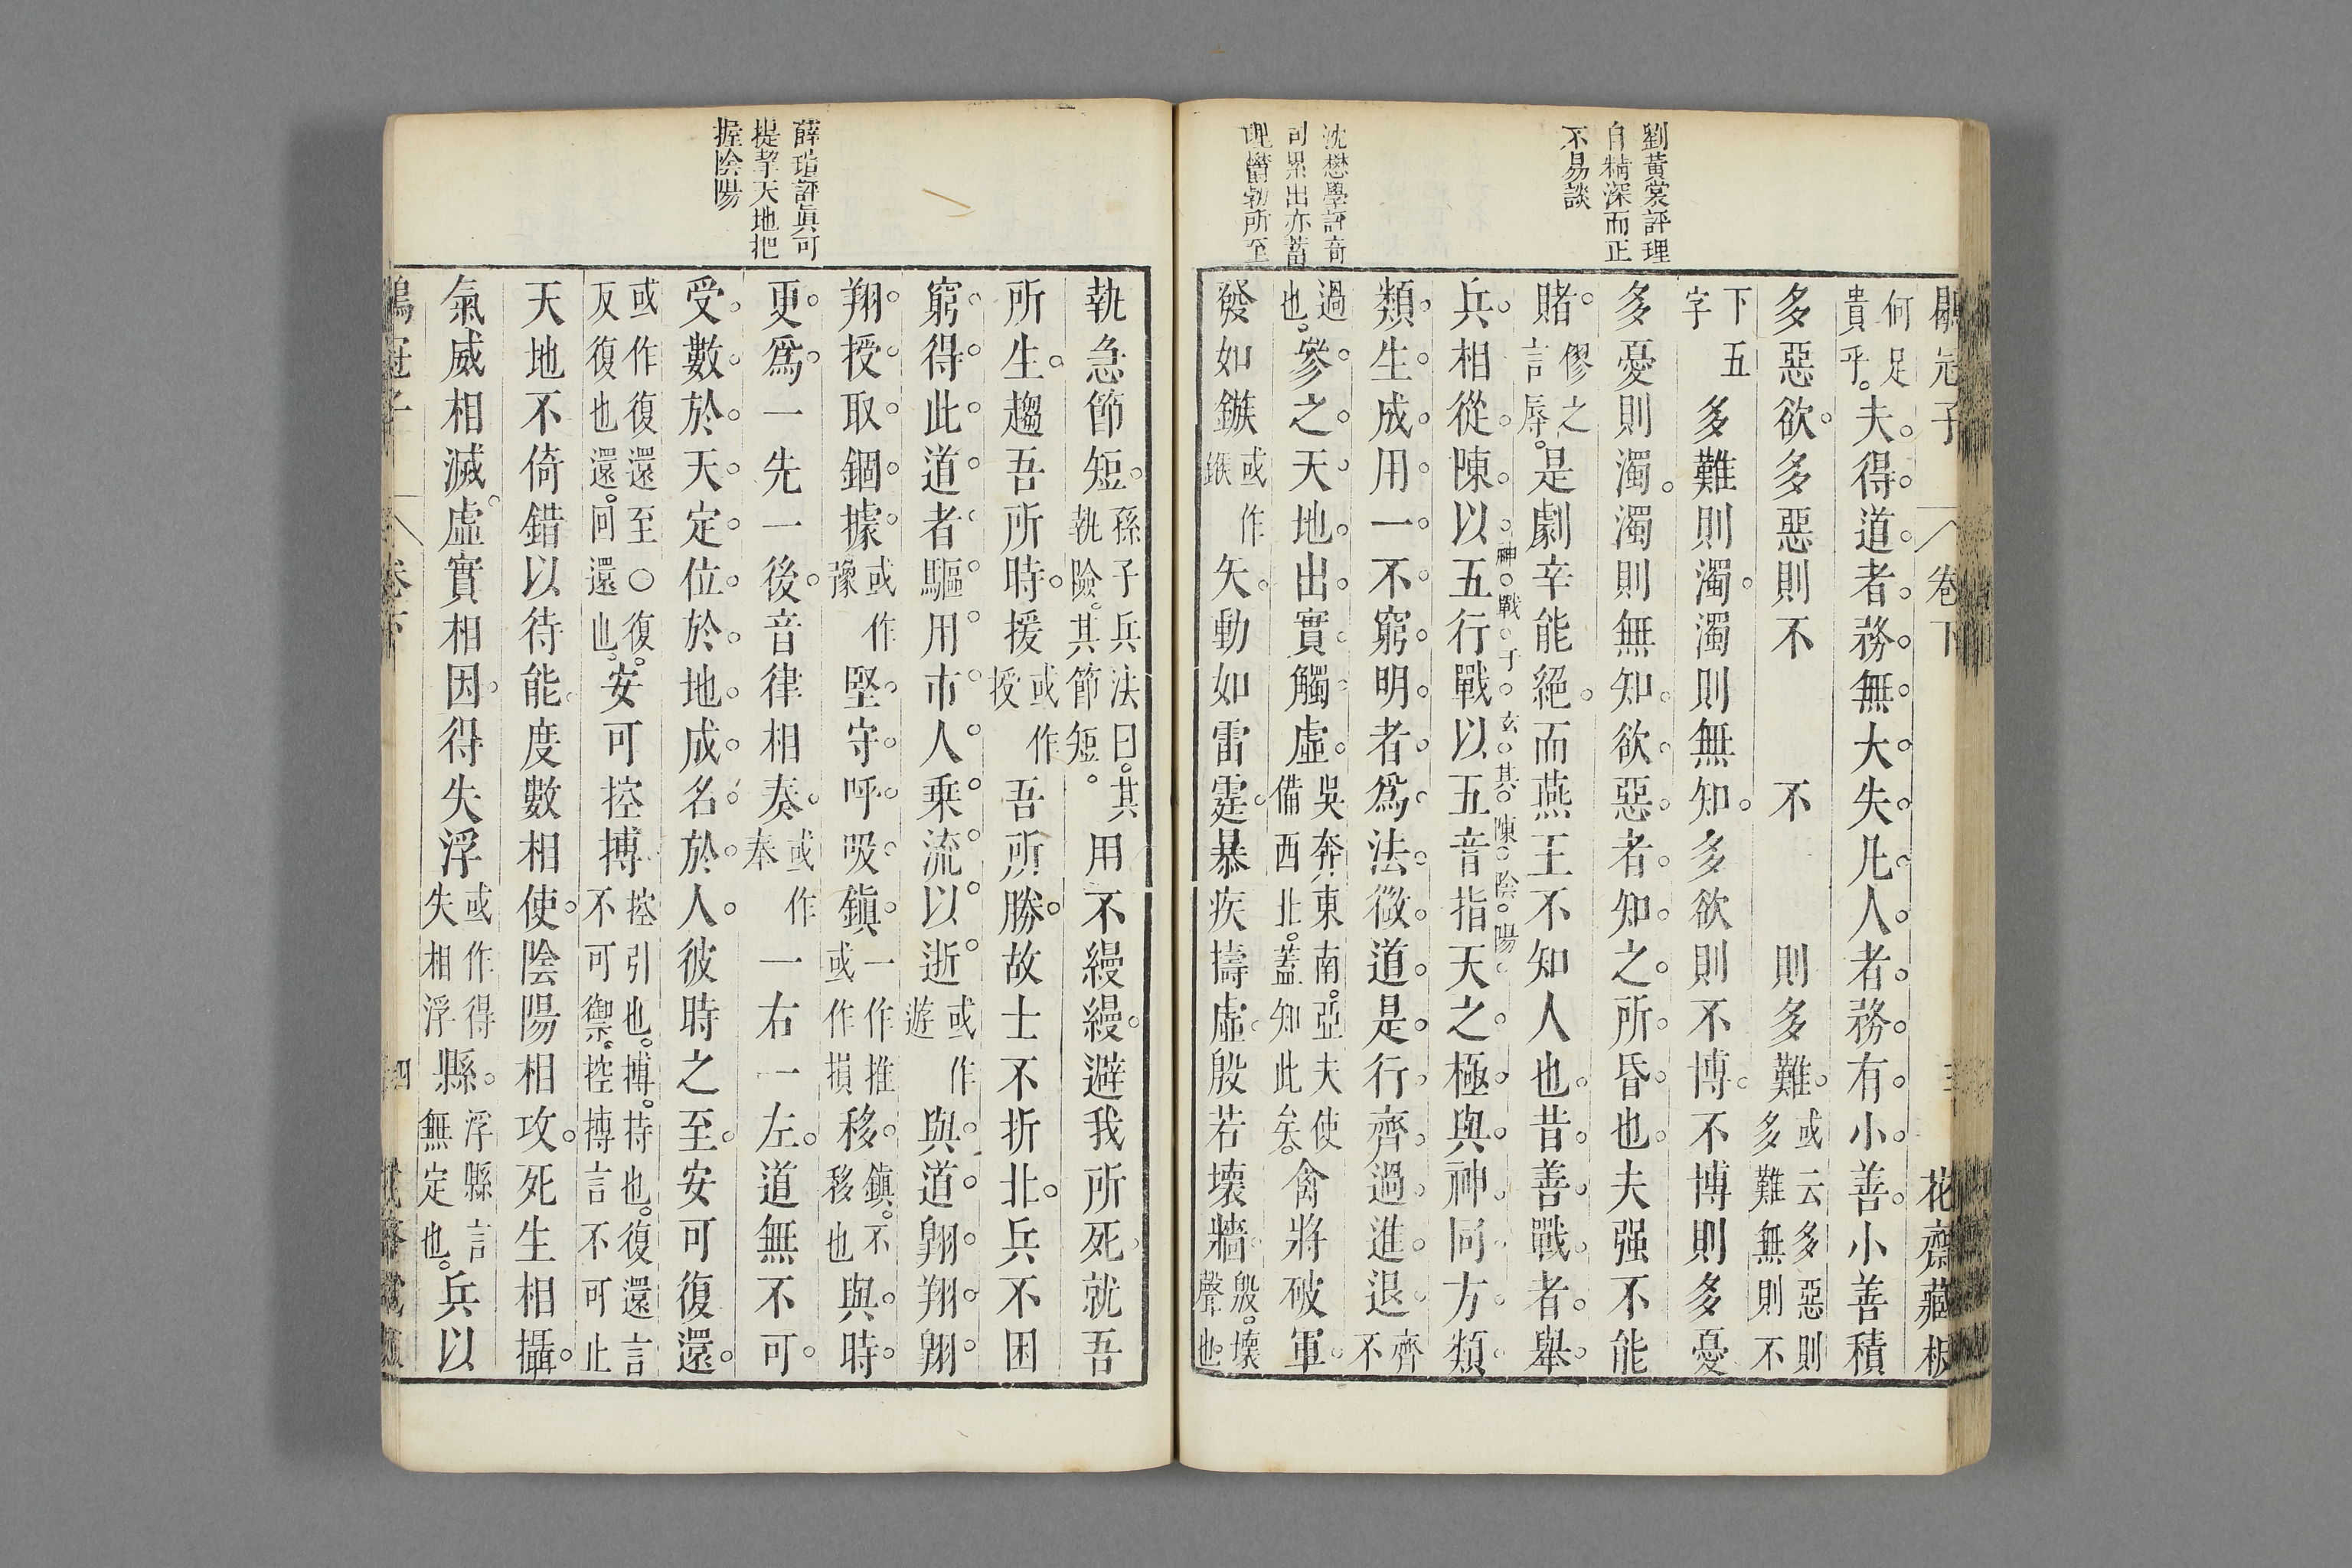 劉黃裳評理
自精深而正
不易談
沈懋學評奇
可累出亦蓄
理鬱勃所至
冠子
卷下
花齋藏板
何足貴乎。夫得道者務無大失。凡人者務有小善。小善積
多惡欲。多惡則不 不 則多難。或云多惡則不多難無則不
下五字 多難則濁。濁則無知。多欲則不博。不博則多憂
多憂則濁。濁則無知。欲惡者。知之所昏也。夫强不能
賭。僇之言辱。是劇辛能絕。而燕王不知人也。昔善戰者。舉
神戰于玄其陳陰陽
兵相從。陳以五行。戰以五音。指天之極。與神同方。類
類生成。用一不窮。明者爲法。微道是行。齊過進退。齊不
過也。參之天地。出實觸虛。吳奔東南。亞夫使備西北。蓋知此矣。禽將破軍。
發如鏃或作鍭矢。動如雷霆。暴疾擣虛。殷若壞牆。殷。壞聲也。
薛瑄評眞可
提挈天地把
握陰陽
執急節短。孫子兵法曰。其執險。其節短。用不縵縵。避我所死。就吾
所生。趨吾所時。援或作授吾所勝。故士不折北。兵不困
窮。得此道者。驅用市人。乘流以逝。或作遊與道翱翔。翱
翔授取。錮據或作豫堅守。呼吸鎮一作推或作損移。鎮。不移也與時
更爲。一先一後。音律相奏。或作奉一右一左。道無不可。
受數於天。定位於地。成名於人。彼時之至。安可復還。
或作復還至〇復。反復也還。囘還也。安可控搏。控引也。搏。持也。復還言不可禦。控搏言不可止
天地不倚。錯以待能。度數相使。陰陽相攻。死生相攝。
氣威相滅。虛實相因。得失浮或作得失相浮縣。浮縣言無定也。兵以
冠子
卷下
四